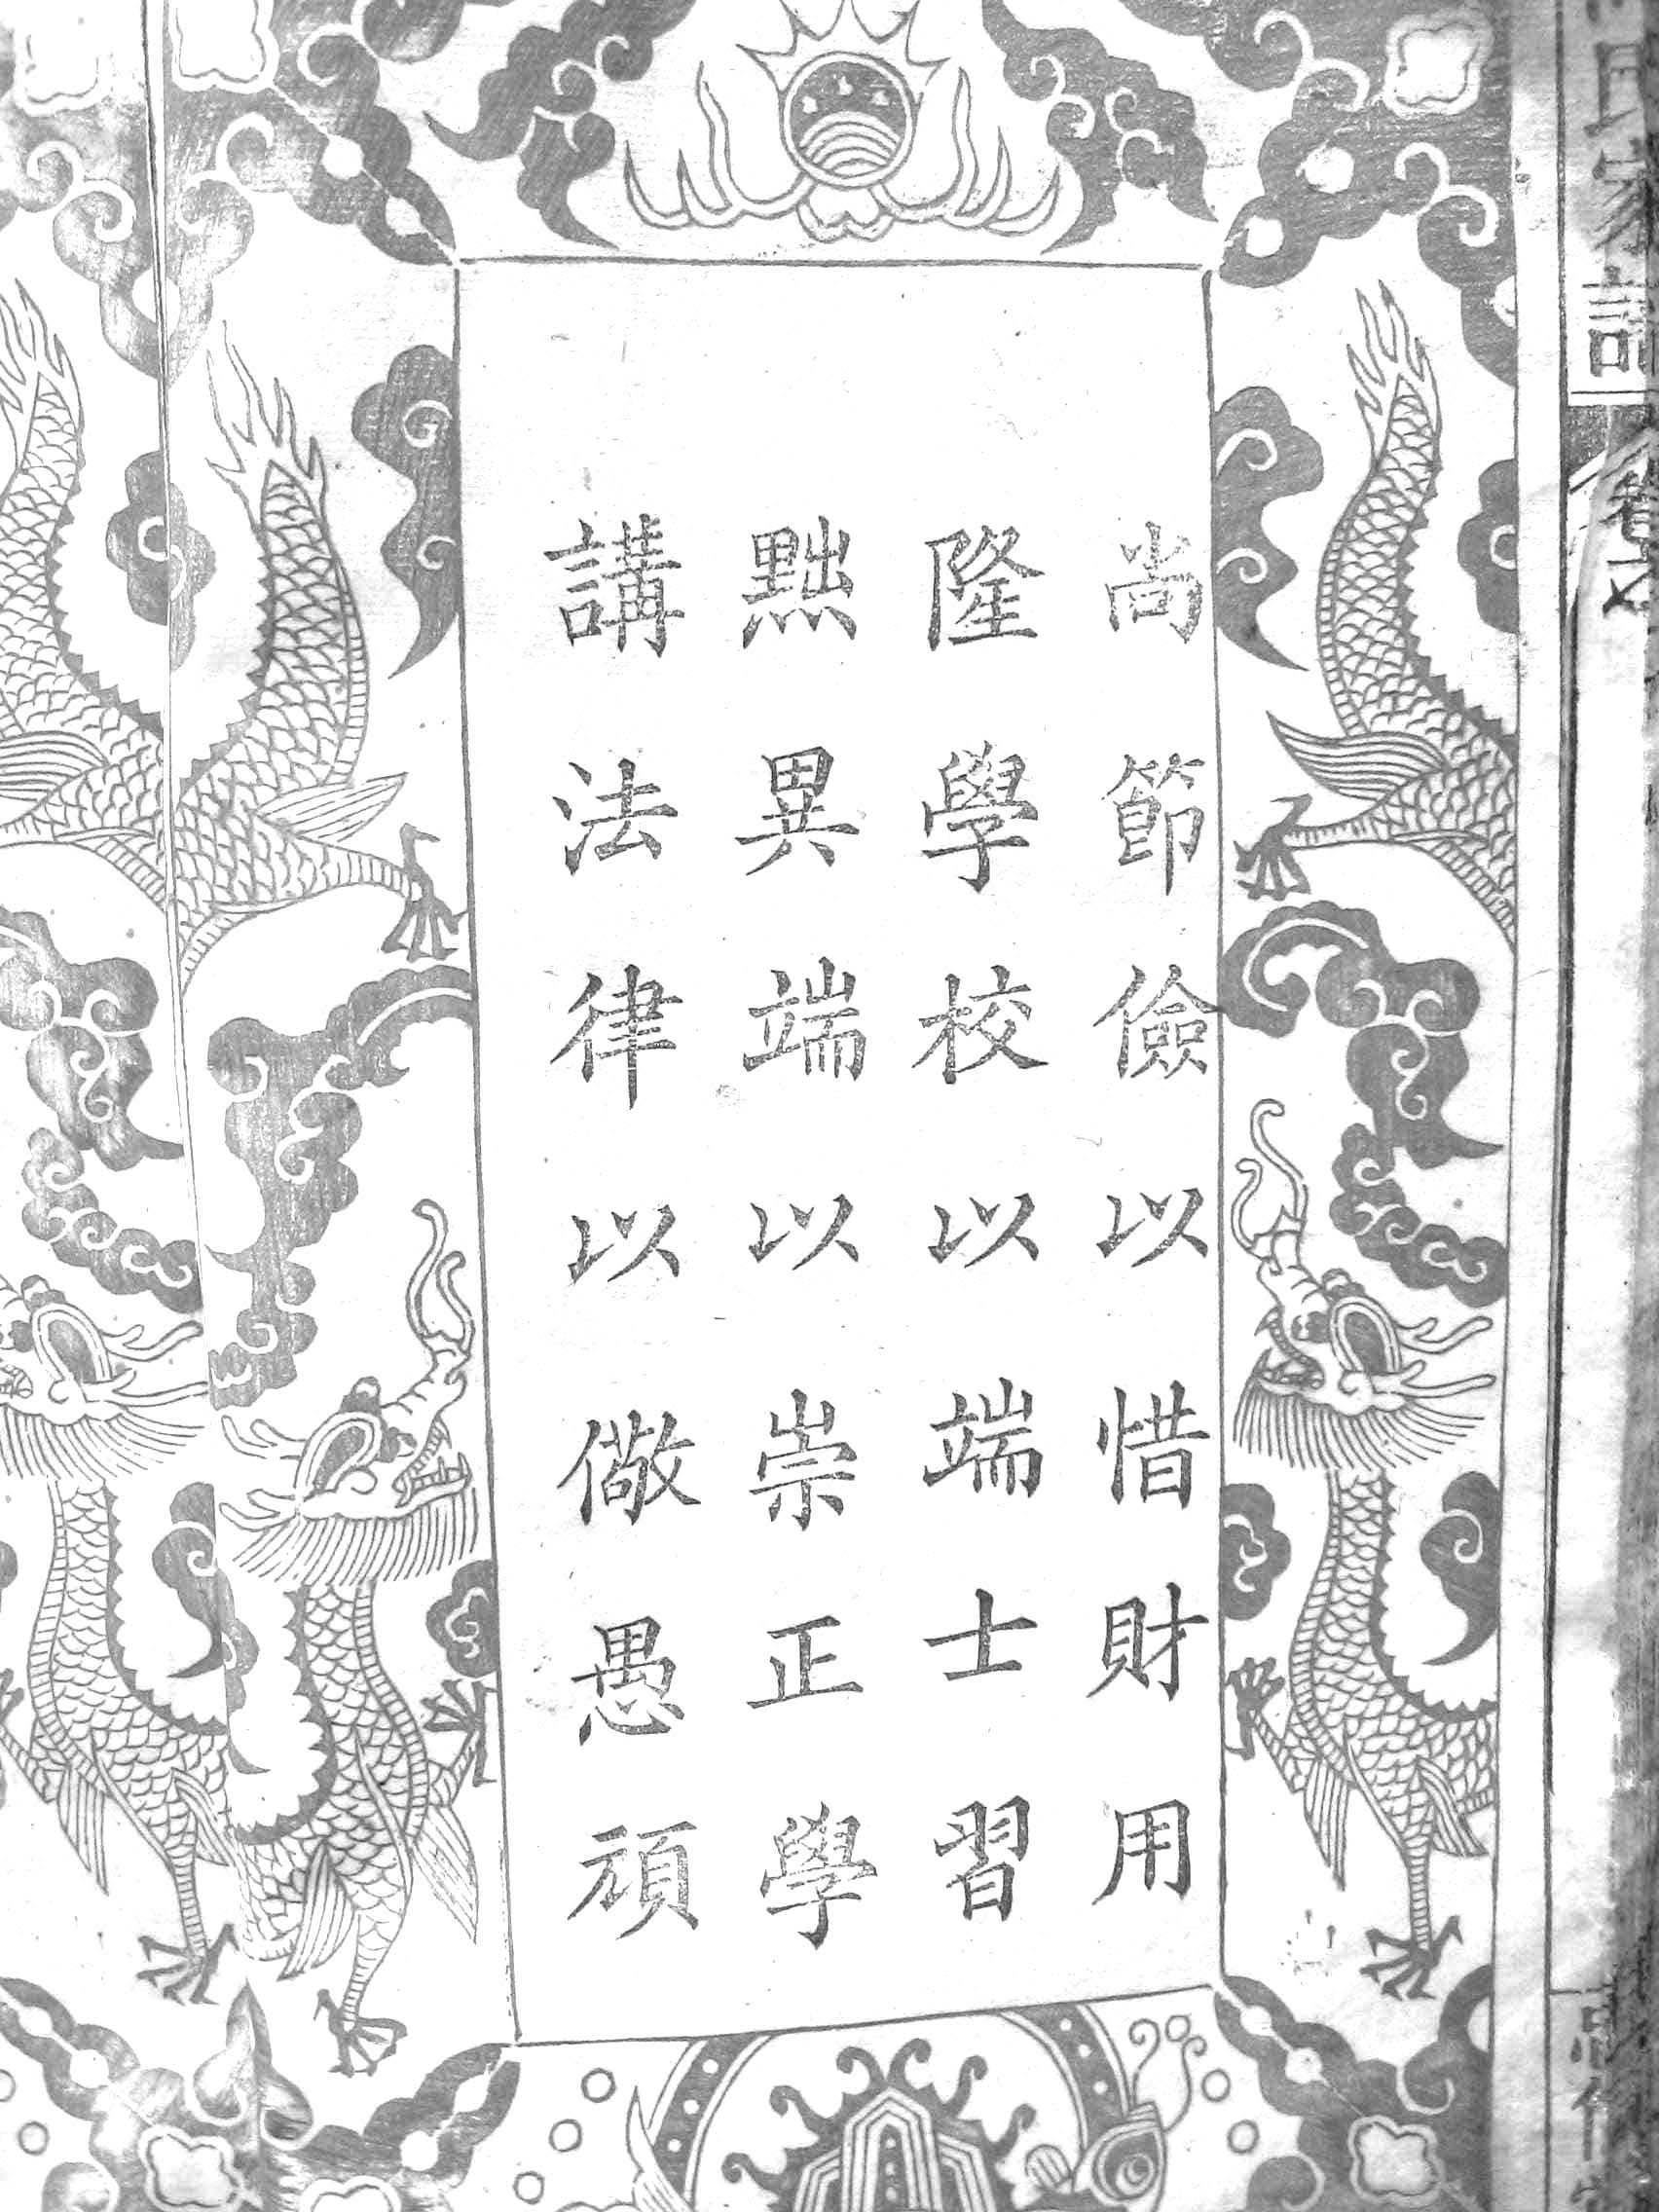 尚節儉以惜財用
隆學校以端士習
黜異端以崇正學
講法律以儆愚頑
氏家譜